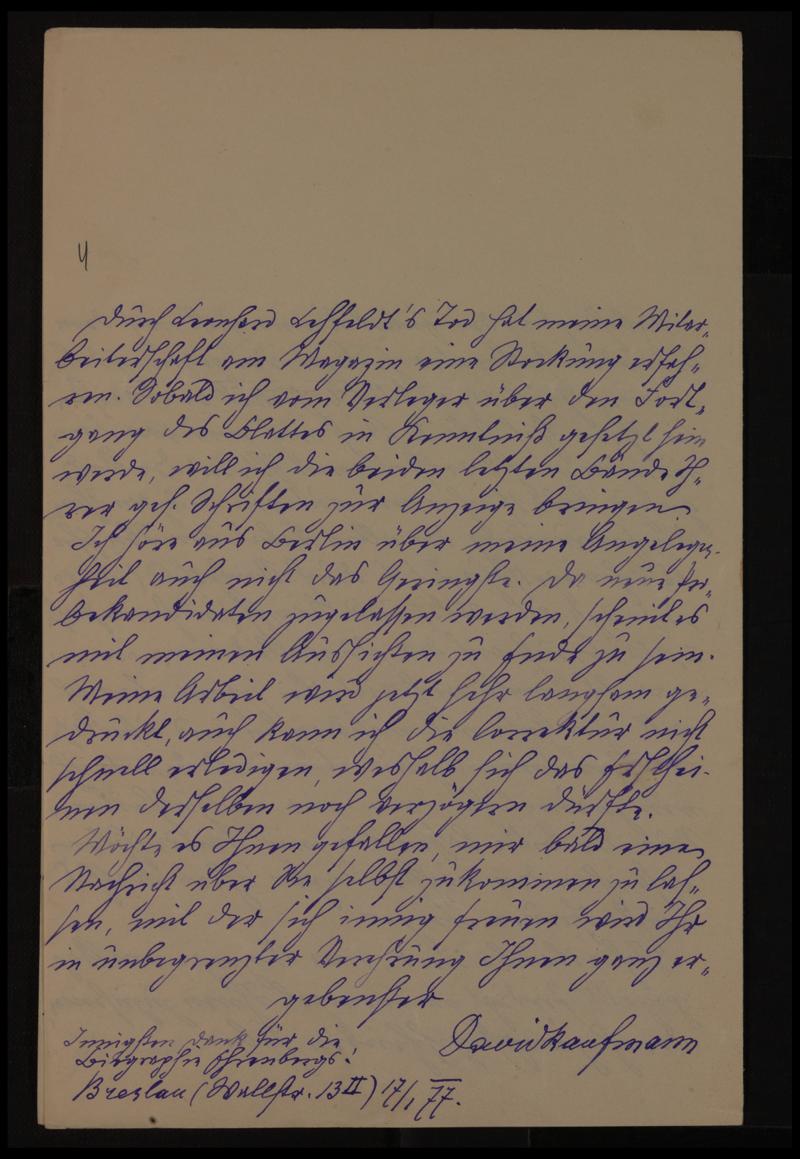 4
Durch Leonhard Lehfeldt's Tod hat meine Mitar-
beiterschaft am Magazin eine Stockung erfah-
ren. Sobald ich vom Verleger über den Fort-
gang des Blattes in Kenntniß gesetzt sein
werde, will ich die beiden letzten Bände Ih-
rer ges. Schriften zur Anzeige bringen.
Ich höre aus Berlin über meine Angelegen-
heit auch nicht das Geringste. Da neue Pro-
bekandidaten zugelassen werden, scheint es
mit meinen Aussichten zu Ende zu sein.
Meine Arbeit wird jetzt sehr langsam ge-
druckt, auch kann ich die Correktur nicht
schnell erledigen, weshalb sich das Erschei-
nen derselben noch verzögern dürfte.
Möchte es Ihnen gefallen, mir bald eine
Nachricht über Sie selbst zukommen zu las-
sen, mit der sich innig freuen wird Ihr
in unbegrenzter Verehrung Ihnen ganz er-
gebenster
David Kaufmann
Innigsten Dank für die
Biographie Ehrenbergs!
Breslau (Wallstr. 13 II) 17/1 77.